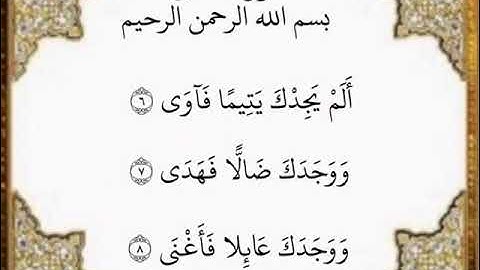 بسم الله الرحمن الرحيم
أَلَمْ يَجِدْكَ يَتِيمًا فَآوَى ٦
وَوَجَدَكَ ضَالًّا فَهَدَى ٧
وَوَجَدَكَ عَابِلًا فَأَغْنَى ٨